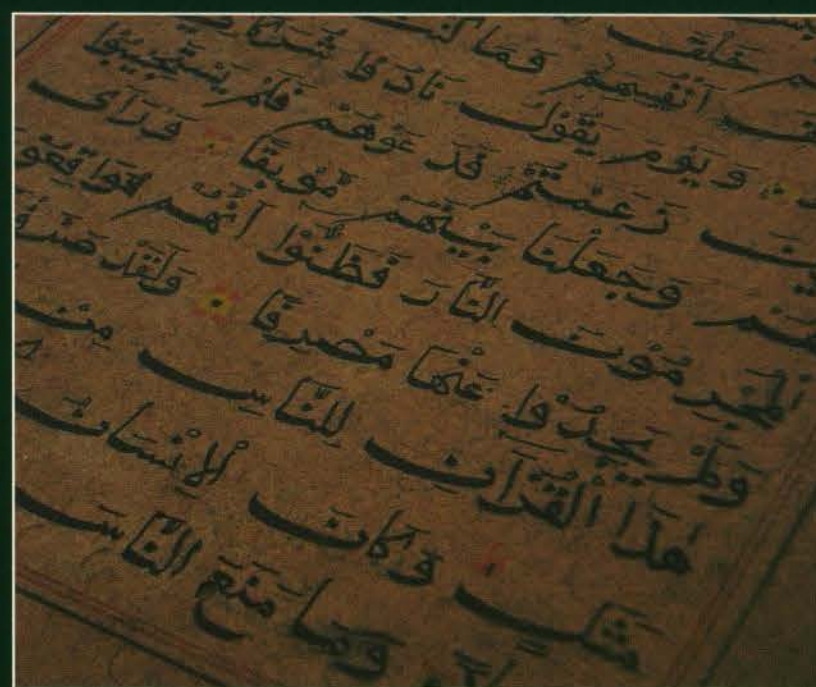 خَلْقَ
أَنْفُسِهِمْ وَمَا كُنْتُ
وَيَوْمَ يَقُولُ نَادُوا شُرَكَا
زَعَمْتُمْ فَدَعَوْهُمْ فَلَمْ يَسْتَجِيبُوا
هُمْ وَجَعَلْنَا بَيْنَهُمْ مَوْبِقًا وَرَأَى
الْمُجْرِمُونَ النَّارَ فَظَنُّوا أَنَّهُمْ مُوَاقِعُو
وَلَمْ يَجِدُوا عَنْهَا مَصْرِفًا وَلَقَدْ صَرَّفْ
هَذَا الْقُرْآنِ لِلنَّاسِ مِنْ
مَثَلٍ وَكَانَ الْإِنْسَانُ
وَمَا مَنَعَ النَّاسَ